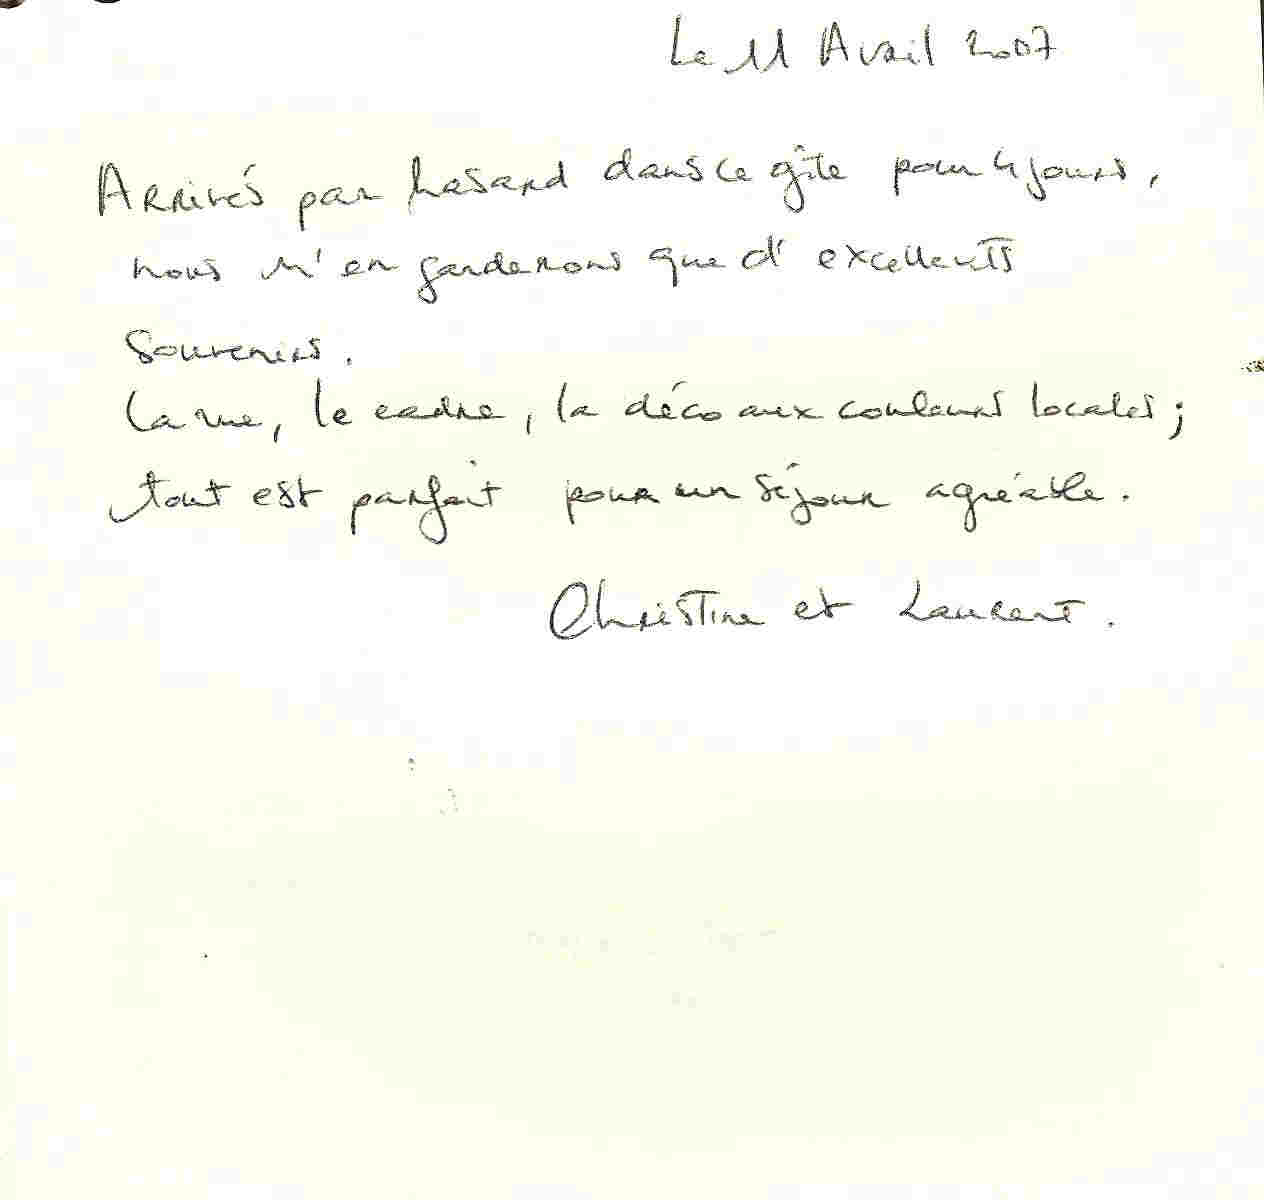 Le 11 Avril 2007
Arrivés par hasard dans ce gîte pour 4 jours,
nous n'en garderons que d'excellents
souvenirs.
La vue, le cadre, la déco aux couleurs locales ;
tout est parfait pour un séjour agréable.
Christine et Laurent.